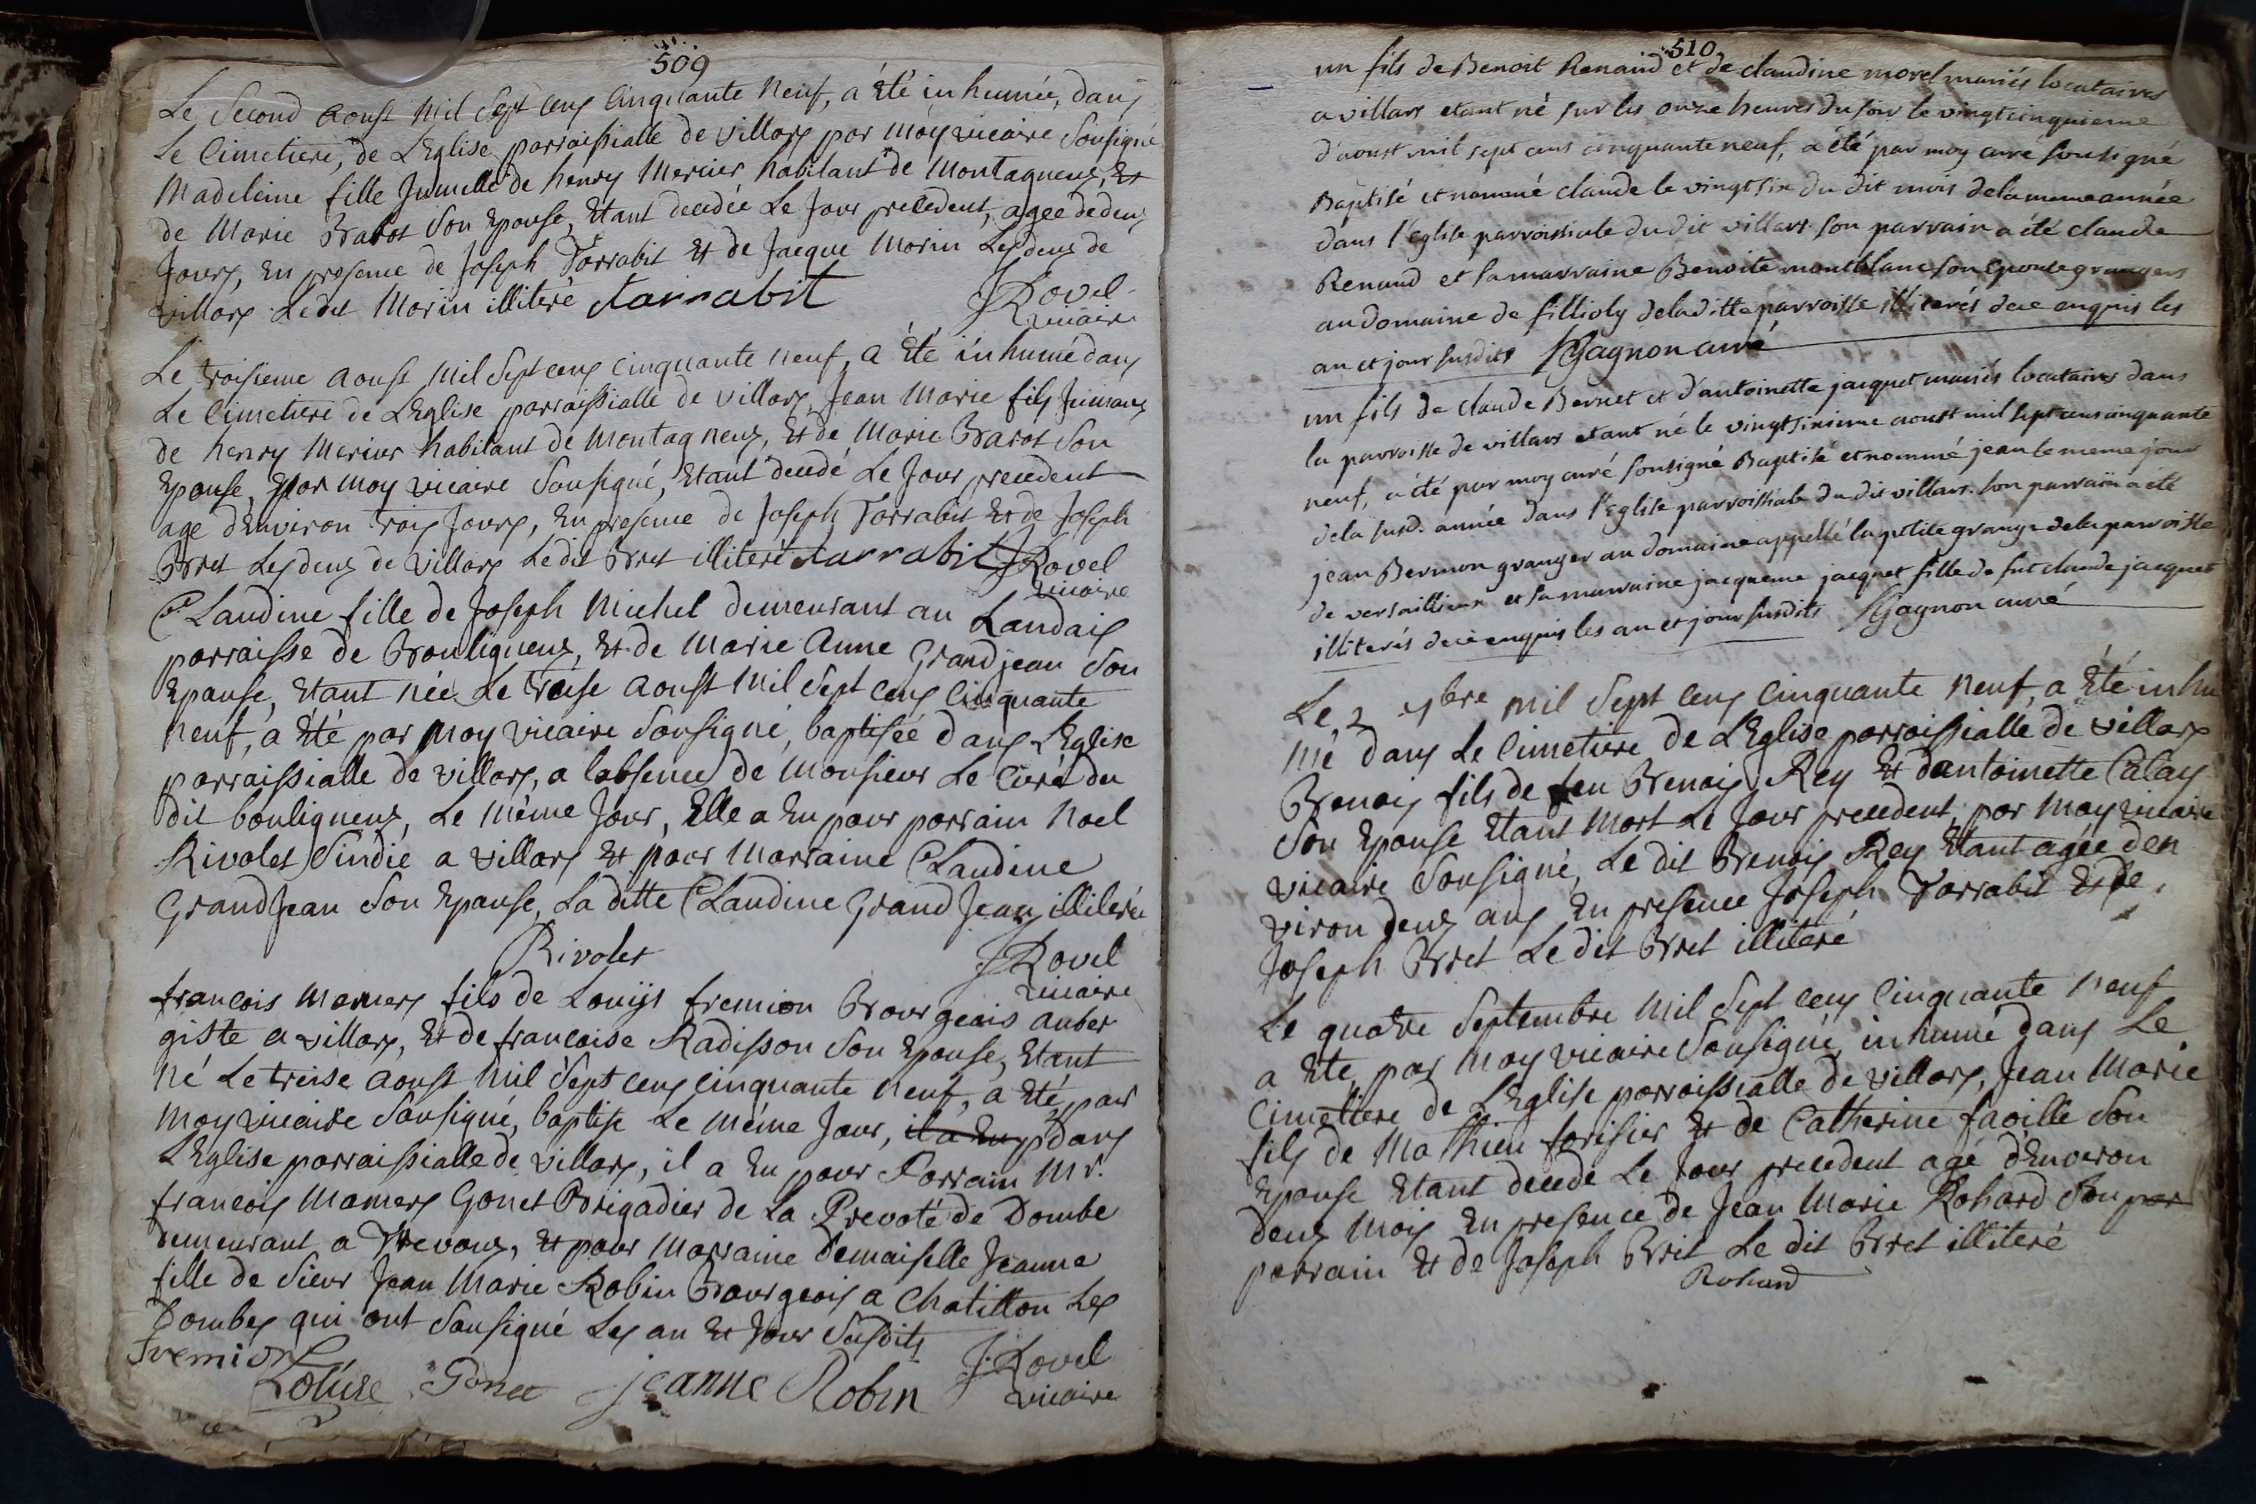 509
Le Second aoust mil Sept cens Cinquante neuf, a Eté in humée, dans
Le Cimetiere, de L'Eglise parraissialle de villars par moy vicaire Sousigné
Madeleine fille Jumelle de henry Mercier habitant de Montagneux, Et
de Marie Barot Son Epouse, Etant decedée Le Jour precedent, agee de deux
Jours, En presence de Joseph Tarrabit Et de Jacque Morin Les deux de
villars Ledit Morin illiteré tarrabit JRovel
vicaire
Le troisieme aoust mil Sept cens cinquante neuf, a Eté inhumé dans
Le Cimetiere de L'Eglise parraissialle de villars, Jean Marie fils Jumeau
de henry Mercier habitant de Montagneux, Et de Marie Barot Son
Epouse, par moy vicaire Sousigné, Etant decedé Le Jour precedent
agé d'Environ trois Jours, En presence de Joseph Tarrabit Et de Joseph
Bret Les deux de villars Ledit Bret illiteré tarrabit JRovel
vicaire
Claudine fille de Joseph Michel demeurant au Landais
parraisse de Bouligneux, Et de Marie Anne Grandjean Son
Epouse, Etant née Le treise aoust mil Sept cens Cinquante
neuf, a Eté par moy vicaire Sousigné, baptisée dans L'Eglise
parraissialle de villars, a l'absence de Monsieur Le Curé du
dit bouligneux, Le même Jour, Elle a Eu pour parrain Noel
Rivolet Sindic a villars Et pour Marraine Claudine
GrandJean Son Epouse, La ditte Claudine Grand Jean illiterée
Rivolet JRovel
vicaire
francois Mamers fils de Louijs fremion Bourgeois auber
giste a villars, Et de francoise Radisson Son Epouse, Etant
né Le treise aoust mil Sept cens cinquante neuf, a Eté par
moy vicaire Sousigné, baptisé Le même Jour, il a Eu dans
L'Eglise parraissialle de villars, il a Eu pour Parrain Mr.
francois Mamers Gonet Brigadier de La Prevoté de Dombe
demeurant a Trevoux, Et pour Marraine demaiselle Jeanne
fille de Sieur Jean Marie Robin Bourgeois a Chatillon Les
Dombes qui ont Sousigné Les an Et Jour Susdits
fremion Louise Gonet jeanne Robin J.Rovel
vicaire
510
un fils de Benoit Renaud et de claudine morel mariés locataires
a villars etant né sur les onze heures du soir le vingtcinquieme
d'aoust mil sept cens cinquante neuf, a été par moy curé sousigné
Baptisé et nommé claude le vingtsix du dit mois de la meme année
dans l'eglise parroissiale du dit villars son parrain a été claude
Renaud et sa marraine Benoite montblanc son epouse grangers
au domaine de fillioly de la ditte parroisse illiterés de ce enquis les
an et jour susdits JGagnon curé
un fils de claude Bernet et d'antoinette jacquet mariés locataires dans
la parroisse de villars etant né le vingtsixieme aoust mil sept cens cinquante
neuf, a été par moy curé sousigné Baptisé et nommé jean le meme jour
de la susd. année dans l'eglise parroissiale du dit villars. son parrain a été
jean Bermon granger au domaine appellé la petite grange de la parroisse
de versaillieux et sa marraine jacqueme jacquet fille de fut claude jacquet
illiterés de ce enquis les an et jour susdits JGagnon curé
Le 2 7bre mil Sept cens Cinquante neuf, a Eté in hu
mé dans Le Cimetiere de L'Eglise parraissialle de villars
Benois fils de feu Benois Rey Et dantoinette Calay
Son Epouse Etant Mort Le Jour precedent, par moy vicaire
vicaire Sousigné, Le dit Benois Rey Etant agée d'en
viron deux ans En presence Joseph Tarrabit Et de
Joseph Bret Le dit Bret illiteré
Le quatre Septembre mil Sept cens Cinquante neuf
a Eté par moy vicaire Sousigné, inhumé dans Le
Cimetiere de L'Eglise parraissialle de villars, Jean Marie
fils de Mathieu forisier Et de Catherine faville Son
Epouse Etant decedé Le Jour precedent agé d'Environ
deux mois En presence de Jean Marie Rohard Son par
parrain Et de Joseph Bret Le dit Bret illiteré
Rohard